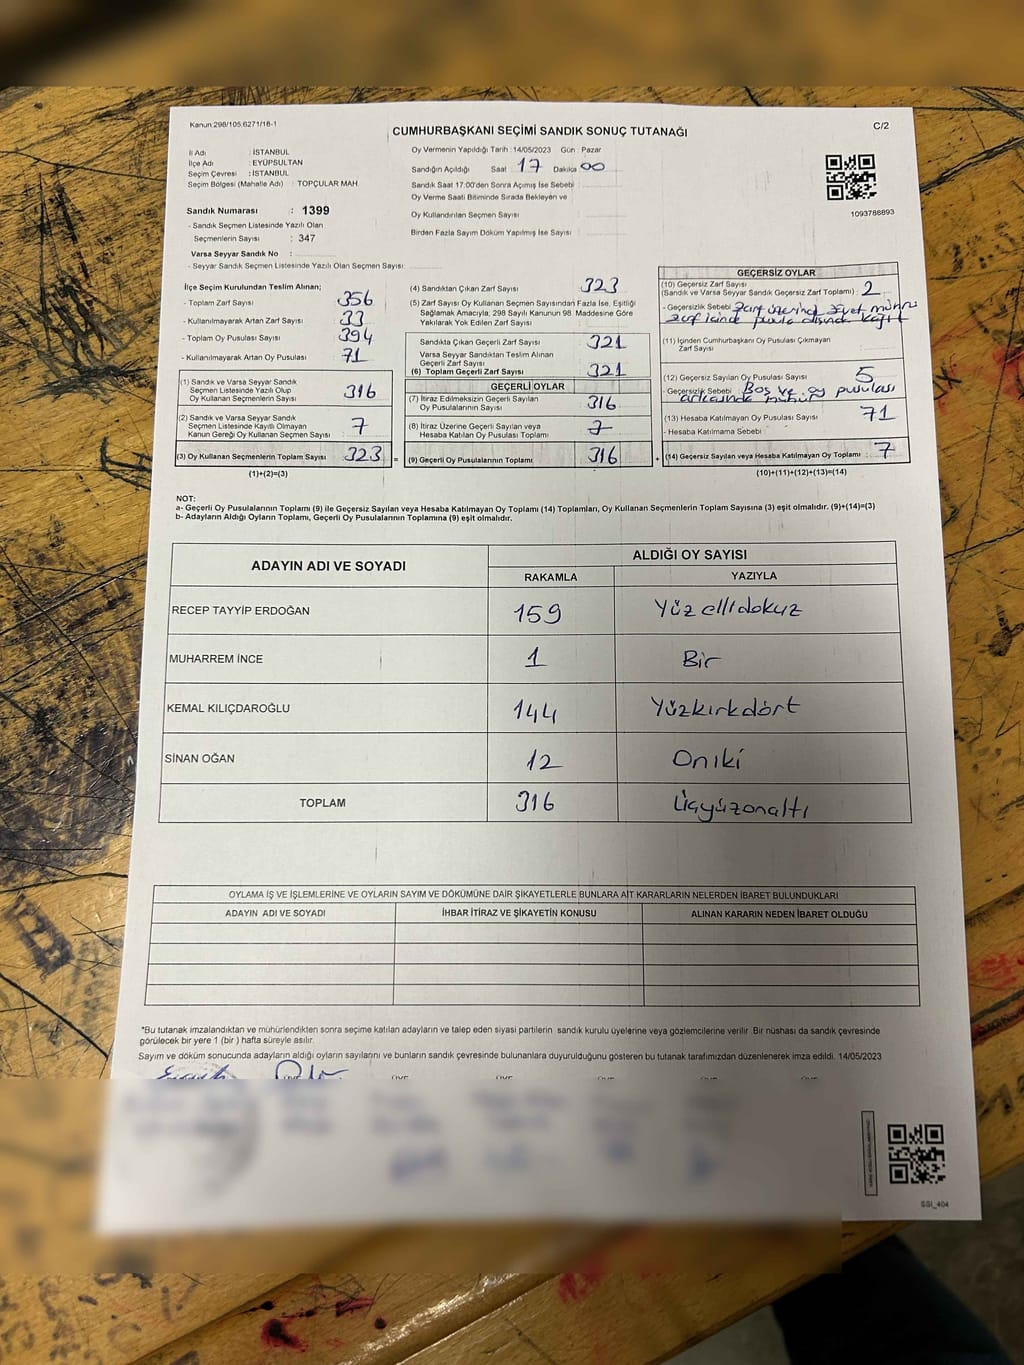 Kanun:298/105,6271/16-1
CUMHURBAŞKANI SEÇİMİ SANDIK SONUÇ TUTANAĞI
C/2
İl Adı : İSTANBUL
İlçe Adı : EYÜPSULTAN
Seçim Çevresi : İSTANBUL
Seçim Bölgesi (Mahalle Adı) : TOPÇULAR MAH.
Sandık Numarası : 1399
- Sandık Seçmen Listesinde Yazılı Olan
Seçmenlerin Sayısı : 347
Varsa Seyyar Sandık No :
- Seyyar Sandık Seçmen Listesinde Yazılı Olan Seçmen Sayısı:
Oy Vermenin Yapıldığı Tarih : 14/05/2023 Gün : Pazar
Sandığın Açıldığı Saat 17 Dakika 00
Sandık Saat 17:00'den Sonra Açımış İse Sebebi :
Oy Verme Saati Bitiminde Sırada Bekleyen ve
Oy Kullandırılan Seçmen Sayısı
Birden Fazla Sayım Döküm Yapılmış İse Sayısı :
1093786893
İlçe Seçim Kurulundan Teslim Alınan;
- Toplam Zarf Sayısı : 356
- Kullanılmayarak Artan Zarf Sayısı : 33
- Toplam Oy Pusulası Sayısı : 394
- Kullanılmayarak Artan Oy Pusulası : 71
(1) Sandık ve Varsa Seyyar Sandık
Seçmen Listesinde Yazılı Olup
Oy Kullanan Seçmenlerin Sayısı : 316
(2) Sandık ve Varsa Seyyar Sandık
Seçmen Listesinde Kayıtlı Olmayan
Kanun Gereği Oy Kullanan Seçmen Sayısı : 7
(3) Oy Kullanan Seçmenlerin Toplam Sayısı : 323
(1)+(2)=(3)
(4) Sandıktan Çıkan Zarf Sayısı : 323
(5) Zarf Sayısı Oy Kullanan Seçmen Sayısından Fazla İse, Eşitliği
Sağlamak Amacıyla; 298 Sayılı Kanunun 98. Maddesine Göre
Yakılarak Yok Edilen Zarf Sayısı :
Sandıkta Çıkan Geçerli Zarf Sayısı : 321
Varsa Seyyar Sandıktan Teslim Alınan
Geçerli Zarf Sayısı :
(6) Toplam Geçerli Zarf Sayısı : 321
GEÇERLİ OYLAR
(7) İtiraz Edilmeksizin Geçerli Sayılan
Oy Pusulalarının Sayısı : 316
(8) İtiraz Üzerine Geçerli Sayılan veya
Hesaba Katılan Oy Pusulası Toplamı :
= (9) Geçerli Oy Pusulalarının Toplamı : 316
GEÇERSİZ OYLAR
(10) Geçersiz Zarf Sayısı
(Sandık ve Varsa Seyyar Sandık Geçersiz Zarf Toplamı) : 2
- Geçersizlik Sebebi : Zarf üzerinde evet mührü
zarf içinde pusula dışında kağıt
(11) İçinden Cumhurbaşkanı Oy Pusulası Çıkmayan
Zarf Sayısı :
(12) Geçersiz Sayılan Oy Pusulası Sayısı : 5
- Geçersizlik Sebebi : Boş ve oy pusulası
arkasında mühür
(13) Hesaba Katılmayan Oy Pusulası Sayısı : 71
- Hesaba Katılmama Sebebi :
+ (14) Geçersiz Sayılan veya Hesaba Katılmayan Oy Toplamı : 7
(10)+(11)+(12)+(13)=(14)
NOT:
a- Geçerli Oy Pusulalarının Toplamı (9) ile Geçersiz Sayılan veya Hesaba Katılmayan Oy Toplamı (14) Toplamları, Oy Kullanan Seçmenlerin Toplam Sayısına (3) eşit olmalıdır. (9)+(14)=(3)
b- Adayların Aldığı Oyların Toplamı, Geçerli Oy Pusulalarının Toplamına (9) eşit olmalıdır.
ADAYIN ADI VE SOYADI
ALDIĞI OY SAYISI
RAKAMLA YAZIYLA
RECEP TAYYİP ERDOĞAN 159 Yüz ellidokuz
MUHARREM İNCE 1 Bir
KEMAL KILIÇDAROĞLU 144 Yüzkırkdört
SİNAN OĞAN 12 Oniki
TOPLAM 316 Üçyüzonaltı
OYLAMA İŞ VE İŞLEMLERİNE VE OYLARIN SAYIM VE DÖKÜMÜNE DAİR ŞİKAYETLERLE BUNLARA AİT KARARLARIN NELERDEN İBARET BULUNDUKLARI
ADAYIN ADI VE SOYADI İHBAR İTİRAZ VE ŞİKAYETİN KONUSU ALINAN KARARIN NEDEN İBARET OLDUĞU
*Bu tutanak imzalandıktan ve mühürlendikten sonra seçime katılan adayların ve talep eden siyasi partilerin sandık kurulu üyelerine veya gözlemcilerine verilir .Bir nüshası da sandık çevresinde
görülecek bir yere 1 (bir ) hafta süreyle asılır.
Sayım ve döküm sonucunda adayların aldığı oyların sayılarını ve bunların sandık çevresinde bulunanlara duyurulduğunu gösteren bu tutanak tarafımızdan düzenlenerek imza edildi. 14/05/2023
SSI_404